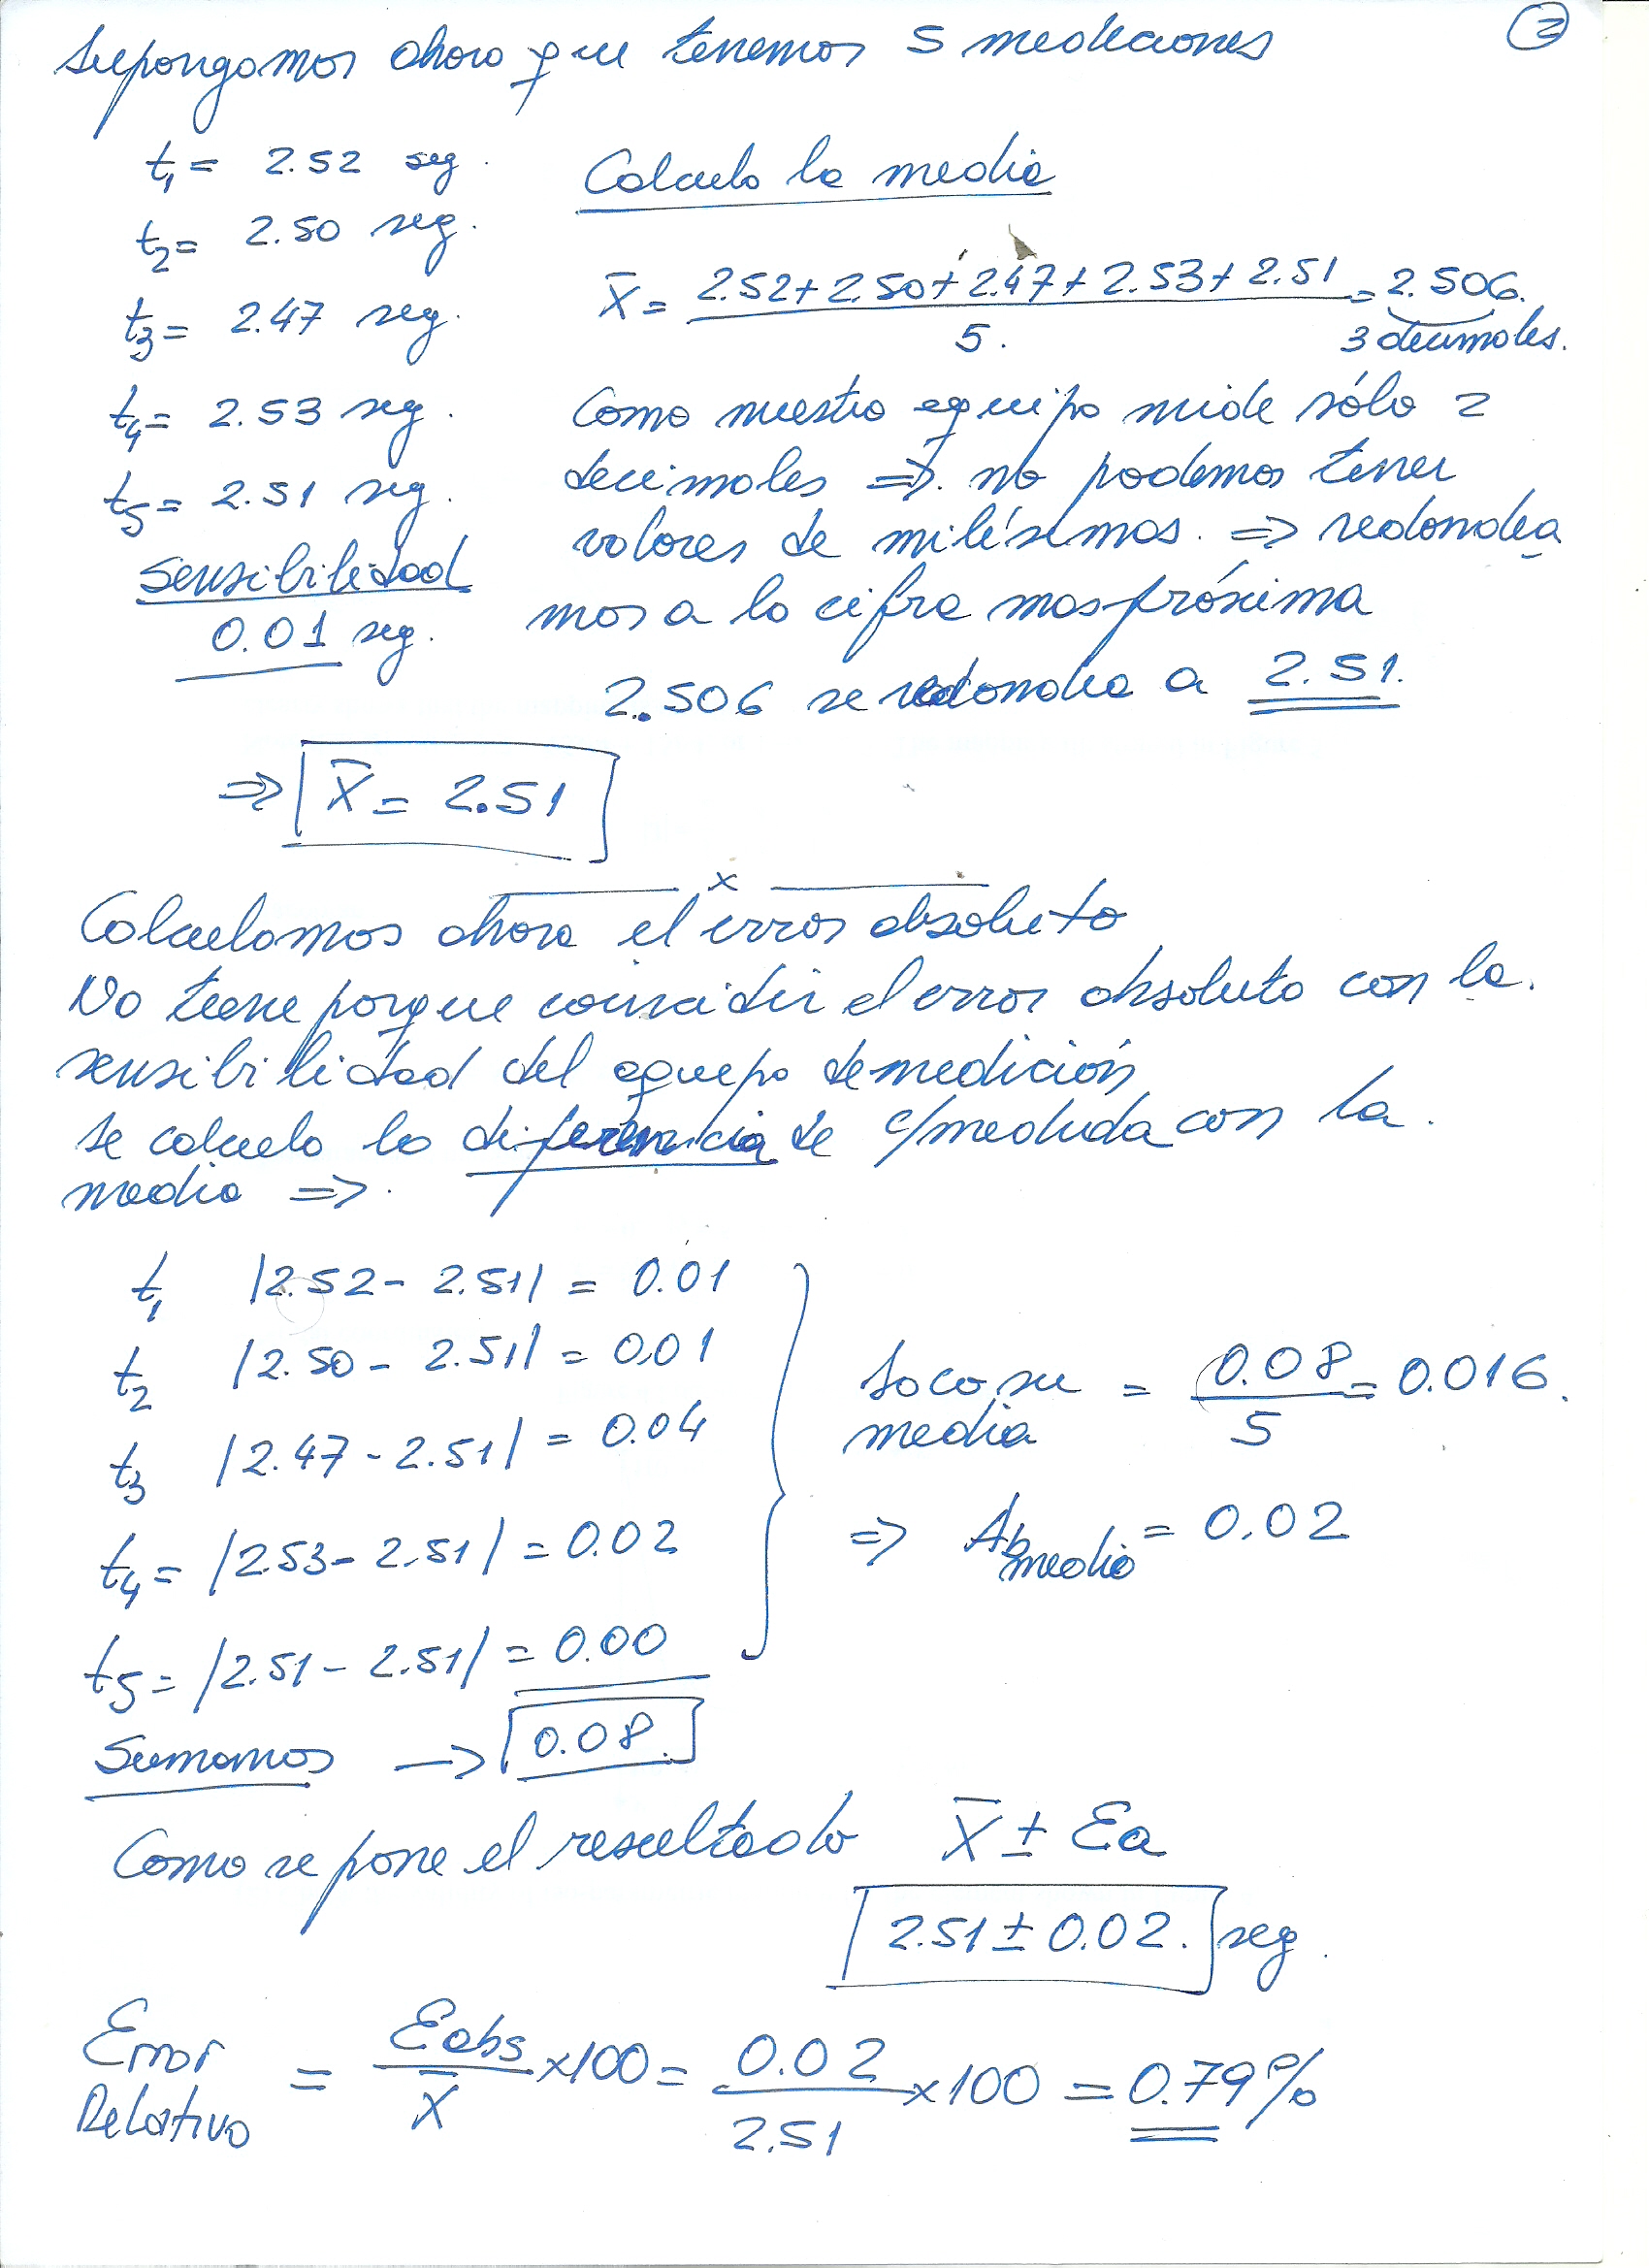 3
Supongamos ahora que tenemos 5 mediciones
t1 = 2.52 seg.
t2 = 2.50 seg.
t3 = 2.47 seg.
t4 = 2.53 seg.
t5 = 2.51 seg.
Sensibilidad
0.01 seg.
Calculo la media
X̄ = 2.52 + 2.50 + 2.47 + 2.53 + 2.51 / 5. = 2.506.
3 decimales.
Como nuestro equipo mide sólo 2
decimales => no podemos tener
valores de milésimas. => redondea
mos a la cifra mas próxima
2.506 se redondea a 2.51.
=> X̄ = 2.51
x
Calculamos ahora el error absoluto
No tiene porque coincidir el error absoluto con la.
sensibilidad del equipo de medición
se calcula la diferencia de c/medida con la.
media =>.
t1 |2.52 - 2.51| = 0.01
t2 |2.50 - 2.51| = 0.01
t3 |2.47 - 2.51| = 0.04
t4 = |2.53 - 2.51| = 0.02
t5 = |2.51 - 2.51| = 0.00
Sumamos -> 0.08.
Saco su media = 0.08 / 5 = 0.016.
=> Ab medio = 0.02
Como se pone el resultado X̄ ± Ea
2.51 ± 0.02. seg.
Error Relativo = Eabs / X̄ x100 = 0.02 / 2.51 x100 = 0.79%